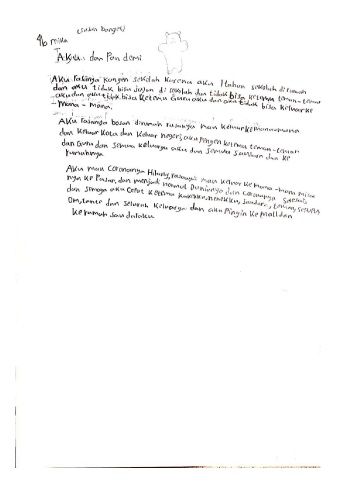 (sabin banget)
4b milla
Aku dan Pandemi
Aku rasanya kangen sekolah karena aku 1 tahun sekolah di rumah
dan aku tidak bisa jajan di sekolah dan tidak bisa ketemu teman-teman
-aku dan aku tidak bisa ketemu Guru aku dan aku tidak bisa keluar ke
-mana-mana.
Aku rasanya bosan dirumah rasanya mau keluar kemana-mana
dan keluar kota dan keluar negeri, aku pingin ketemu teman-teman
dan Guru dan semua keluarga aku dan semua saudara dan ke
rumahnya
Aku mau Coronanya Hilang, rasanya mau keluar kemana-mana misal
nya ke Pantai, dan menjadi normal Dunianya dan Coronanya Selesai
dan semoga aku cepat ketemu kakekku, nenekku, saudara, teman, sepupu,
Om, tante dan seluruh keluarga dan aku Pingin ke mall dan
kerumah saudaraku